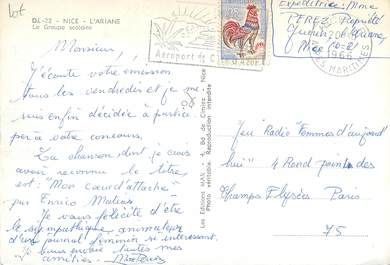 Lot
D.L-22 - NICE - L'ARIANE
Le Groupe scolaire
Monsieur,
J'écoute votre émission
tous les vendredis et je me
suis enfin décidée à partici-
per à votre concours.
La chanson dont je crois
avoir reconnu le titre
est: "Mon cœur d'attache"
par Enrico Macias
Je vous félicite d'être
le sympathique animateur
d'un journal féminin si intéressant.
Je vous envoie toutes mes
amitiés.
Les Editions MAR - 4, Bd. de Cimiez - Nice
Photo véritable - Reproduction interdite
Aéroport de
Expéditrice: Mme
PEREZ
Nice
ALPES MARITIMES
1966
Jeu "Radio Femmes d'aujourd
hui" 4 Rond point des
Champs Elysées Paris
75